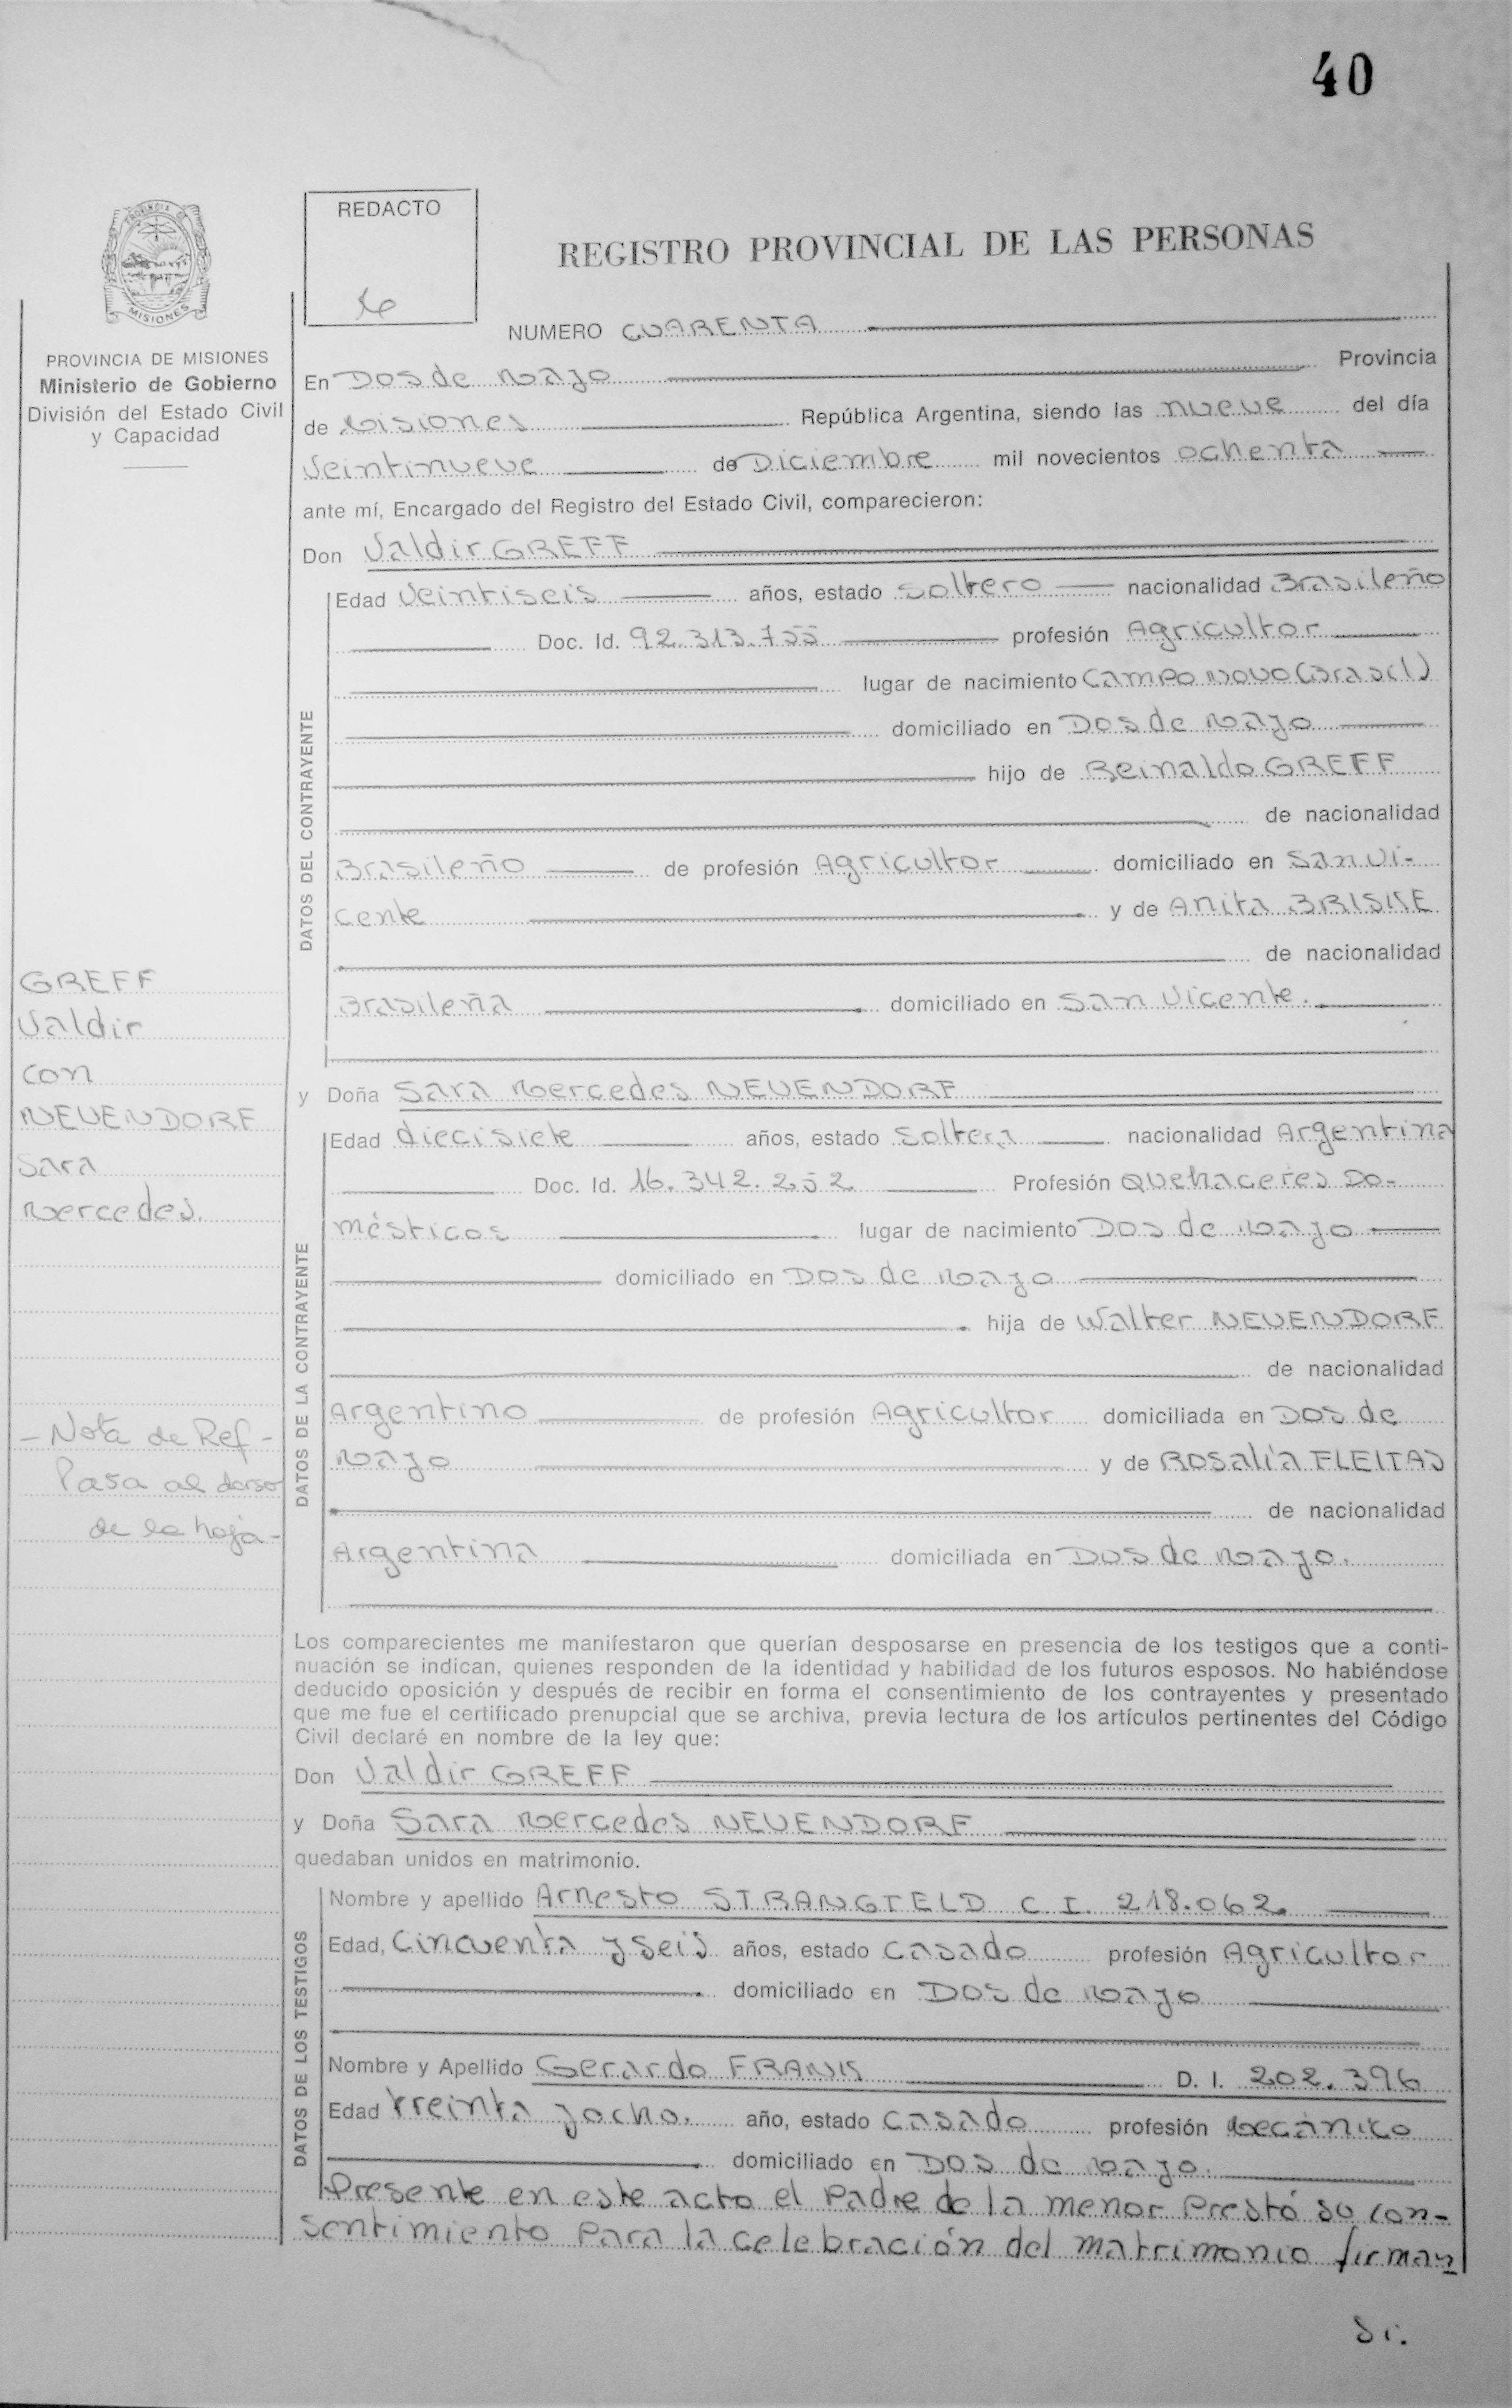 40
REDACTO
REGISTRO PROVINCIAL DE LAS PERSONAS
PROVINCIA DE MISIONES
Ministerio de Gobierno
División del Estado Civil
y Capacidad
NUMERO CUARENTA
En Dos de Mayo Provincia
de Misiones República Argentina, siendo las nueve del día
Veintinueve de Diciembre mil novecientos ochenta
ante mí, Encargado del Registro del Estado Civil, comparecieron:
Don Valdir GREFF
DATOS DEL CONTRAYENTE
Edad Veintiseis años, estado Soltero nacionalidad Brasileño
Doc. Id. 92.313.755 profesión Agricultor
lugar de nacimiento Campo Novo (Brasil)
domiciliado en Dos de Mayo
hijo de Reinaldo GREFF
de nacionalidad
Brasileño de profesión Agricultor domiciliado en San Vi-
cente y de Anita BRISKE
de nacionalidad
Brasileña domiciliado en San Vicente.
GREFF
Valdir
con
NEUENDORF
Sara
Mercedes.
y Doña Sara Mercedes NEUENDORF
DATOS DE LA CONTRAYENTE
Edad diecisiete años, estado Soltera nacionalidad Argentina
Doc. Id. 16.342.252 Profesión Quehaceres Do-
mésticos lugar de nacimiento Dos de Mayo
domiciliado en Dos de Mayo
hija de Walter NEUENDORF
de nacionalidad
Argentino de profesión Agricultor domiciliada en Dos de
Mayo y de Rosalía FLEITAS
de nacionalidad
Argentina domiciliada en Dos de Mayo.
- Nota de Ref -
Pasa al dorso
de la hoja -
Los comparecientes me manifestaron que querían desposarse en presencia de los testigos que a conti-
nuación se indican, quienes responden de la identidad y habilidad de los futuros esposos. No habiéndose
deducido oposición y después de recibir en forma el consentimiento de los contrayentes y presentado
que me fue el certificado prenupcial que se archiva, previa lectura de los artículos pertinentes del Código
Civil declaré en nombre de la ley que:
Don Valdir GREFF
y Doña Sara Mercedes NEUENDORF
quedaban unidos en matrimonio.
DATOS DE LOS TESTIGOS
Nombre y apellido Arnesto STRANGFELD C. I. 218.062
Edad, Cincuenta y seis años, estado Casado profesión Agricultor
domiciliado en Dos de Mayo
Nombre y Apellido Gerardo FRANK D. I. 202.396
Edad treinta y ocho. año, estado Casado profesión Mecánico
domiciliado en Dos de Mayo.
Presente en este acto el Padre de la menor Prestó su con-
sentimiento Para la celebración del matrimonio firman